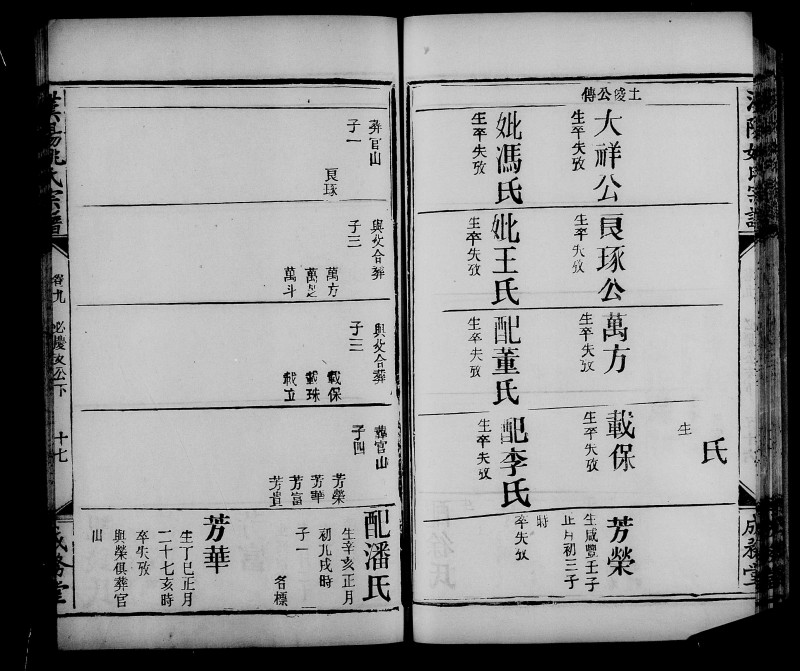 土陵公傳
大祥公
生卒失攷
妣馮氏
生卒失攷
良琢公
生卒失攷
妣王氏
生卒失攷
萬方
生卒失攷
配董氏
生卒失攷
氏
生
載保
生卒失攷
配李氏
生卒失攷
芳榮
生咸豐壬子
正月初三子
時
卒失攷
成務堂
葬官山
子一
良琢
與父合葬
子三
萬方
萬邑
萬斗
與父合葬
子三
載保
載珠
載立
葬官山
子四
芳榮
芳華
芳富
芳貴
配潘氏
生辛亥正月
初九戌時
子一
名標
芳華
生丁巳正月
二十七亥時
卒失攷
與榮俱葬官
山
姚氏宗譜
卷九
必慶文公下
十七
成務堂